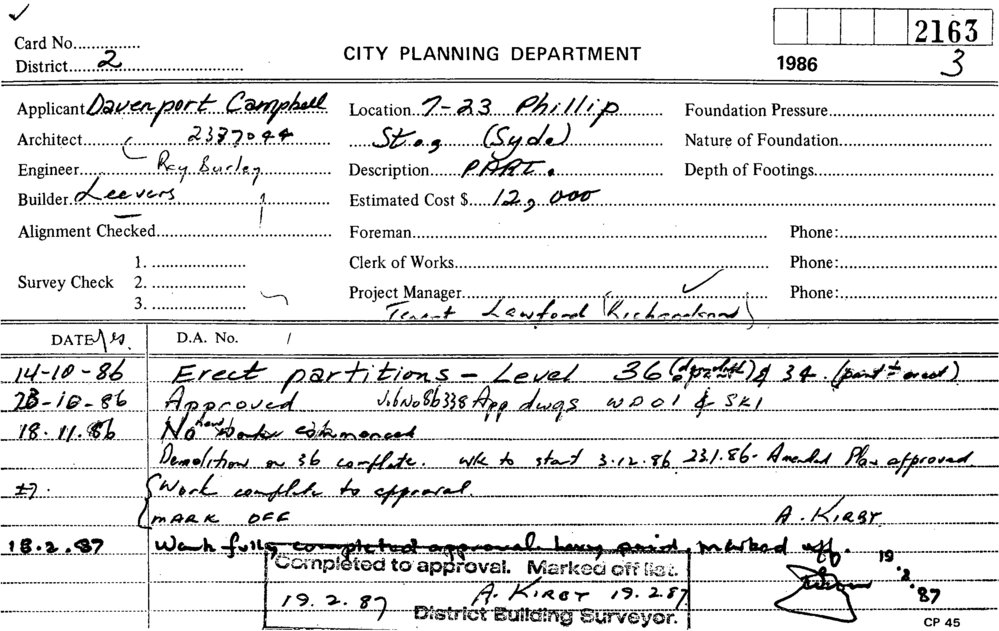 2163
Card No.
CITY PLANNING DEPARTMENT
1986
3
District 2
Applicant Davenport Campbell
Location 7-23 Phillip
Foundation Pressure
Architect 2337044
St., (Syde)
Nature of Foundation
Engineer Ray Burley
Description PART.
Depth of Footings
Builder Leevers
Estimated Cost $ 12,000
Alignment Checked
Foreman
Phone:
Survey Check
1.
2.
3.
Clerk of Works
Phone:
Project Manager
Phone:
Tenant Lawford
DATE
D.A. No.
14-10-86 Erect partitions - Level 36 & 34.
23-10-86 Approved Job No 86338 App dwgs WD01 & SK1
18.11.86 No new works commenced
Demolition on 36 complete. wk to start 3.12.86 23.1.86 - Amended Plan approved.
Work complete to approval.
MARK OFF A. KIRBY
18.2.87 Work fully completed approval. marked off.
19.2.87
Completed to approval. Marked off list.
19.2.87 A. KIRBY 19.2.87
District Building Surveyor.
CP 45